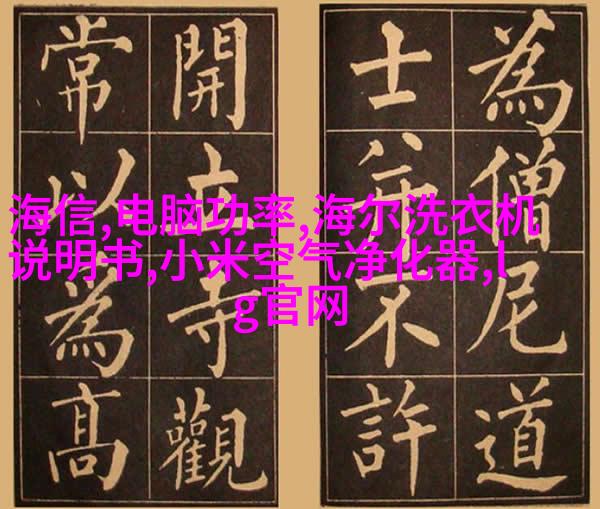 為僧尼道
士并不許
開立寺觀
常以為高
海信,电脑功率,海尔洗衣机
说明书,小米空气净化器,l
g官网